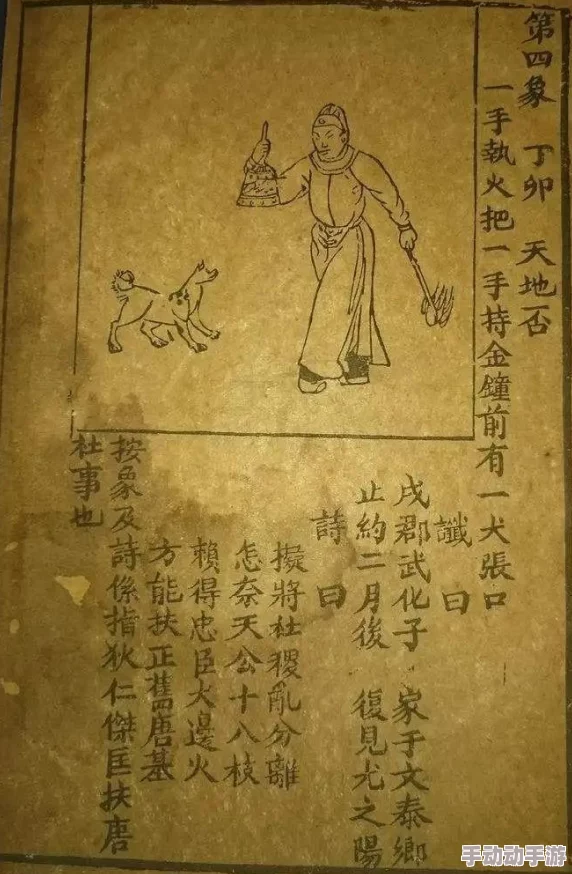 第四象　丁卯　天地否
一手執火把一手持金鐘前有一犬張口
讖曰
戌郡武化子　家于文泰鄉
止約二月後　復見尤之陽
詩曰
擬將杜稷亂分離
怎奈天公十八枝
賴得忠臣犬邊火
方能扶正舊唐基
按象及詩係指狄仁傑匡扶唐
社事也
手动动手游